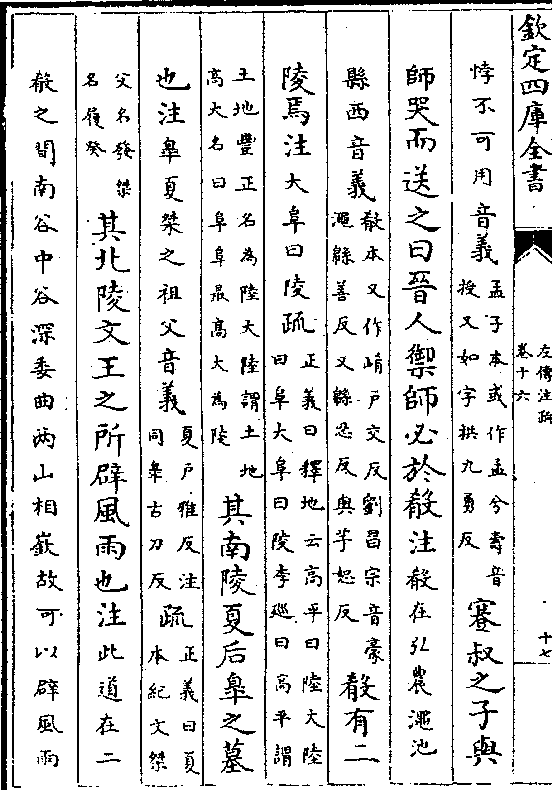 欽定四庫全書
左傳注疏
卷十六
十七
悖不可用音義孟子本或作孟兮壽音
授又如字拱九勇反蹇叔之子與
師哭而送之曰晉人禦師必於殽注殽在弘農澠池
縣西音義殽本又作崤戶交反劉昌宗音豪
澠緜善反又緜忍反與芋恕反殽有二
陵焉注大阜曰陵疏正義曰釋地云高平曰陸大陸
曰阜大阜曰陵李巡曰高平謂
土地豐正名為陸大陸謂土地
高大名曰阜阜最高大為陵其南陵夏后皋之墓
也注皋夏桀之祖父音義夏戶雅反注
同皋古刀反疏正義曰夏
本紀文桀
父名發桀
名履癸其北陵文王之所辟風雨也注此道在二
殽之間南谷中谷深委曲兩山相嶔故可以辟風雨